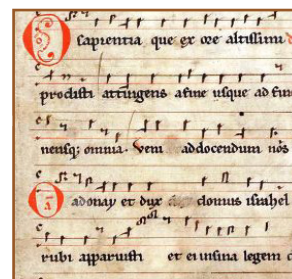 O sapientia que ex ore altissimi
prodisti attingens a fine usque ad fin
nensq; omnia. Veni ad docendum nos
O adonay et dux domus israhel
rubi apparuisti et ei insina legem d